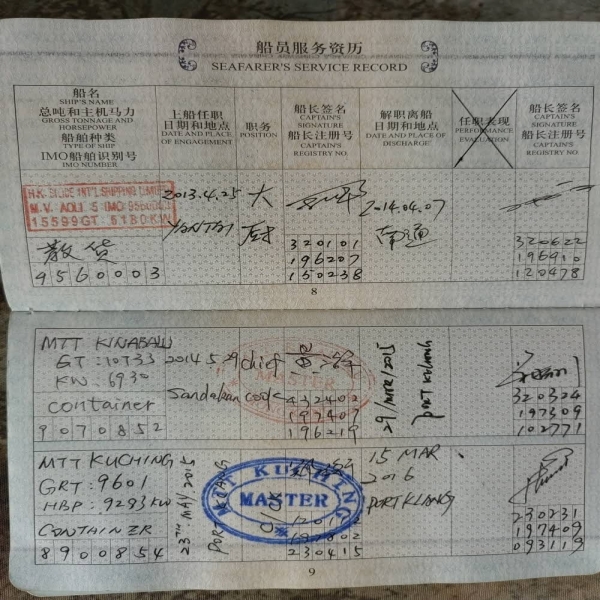 船员服务资历
SEAFARER'S SERVICE RECORD
船名
SHIP'S NAME
总吨和主机马力
GROSS TONNAGE AND
HORSEPOWER
船舶种类
TYPE OF SHIP
IMO船舶识别号
IMO NUMBER
上船任职
日期和地点
DATE AND PLACE
OF ENGAGEMENT
职务
POSITION
船长签名
CAPTAIN'S
SIGNATURE
船长注册号
CAPTAIN'S
REGISTRY NO
解职离船
日期和地点
DATE AND PLACE OF
DISCHARGE
任职表现
PERFORMANCE
EVALUATION
船长签名
CAPTAIN'S
SIGNATURE
船长注册号
CAPTAIN'S
REGISTRY NO.
M.V. AOLI 5 IMO 9560003
15599GT 6180KW
散货
9560003
2013.4.25
YANTAI
大
厨
320101
196207
150238
2014.04.07
南通
320622
196910
120478
8
MTT KINABALU
GT: 10733
KW: 6930
container
9070852
2014 5.29
Sandakan
chief
cook
MASTER
432402
197407
196219
29/MAR/2015
PORT KLANG
320324
197309
102771
MTT KUCHING
GRT: 9601
HBP: 9293 KW
CONTAINER
8900854
23TH MAY 2015
PORT KLANG
C/CK
MTT KUCHING
MASTER
230415
15 MAR
2016
PORT KLANG
230231
197409
093119
9